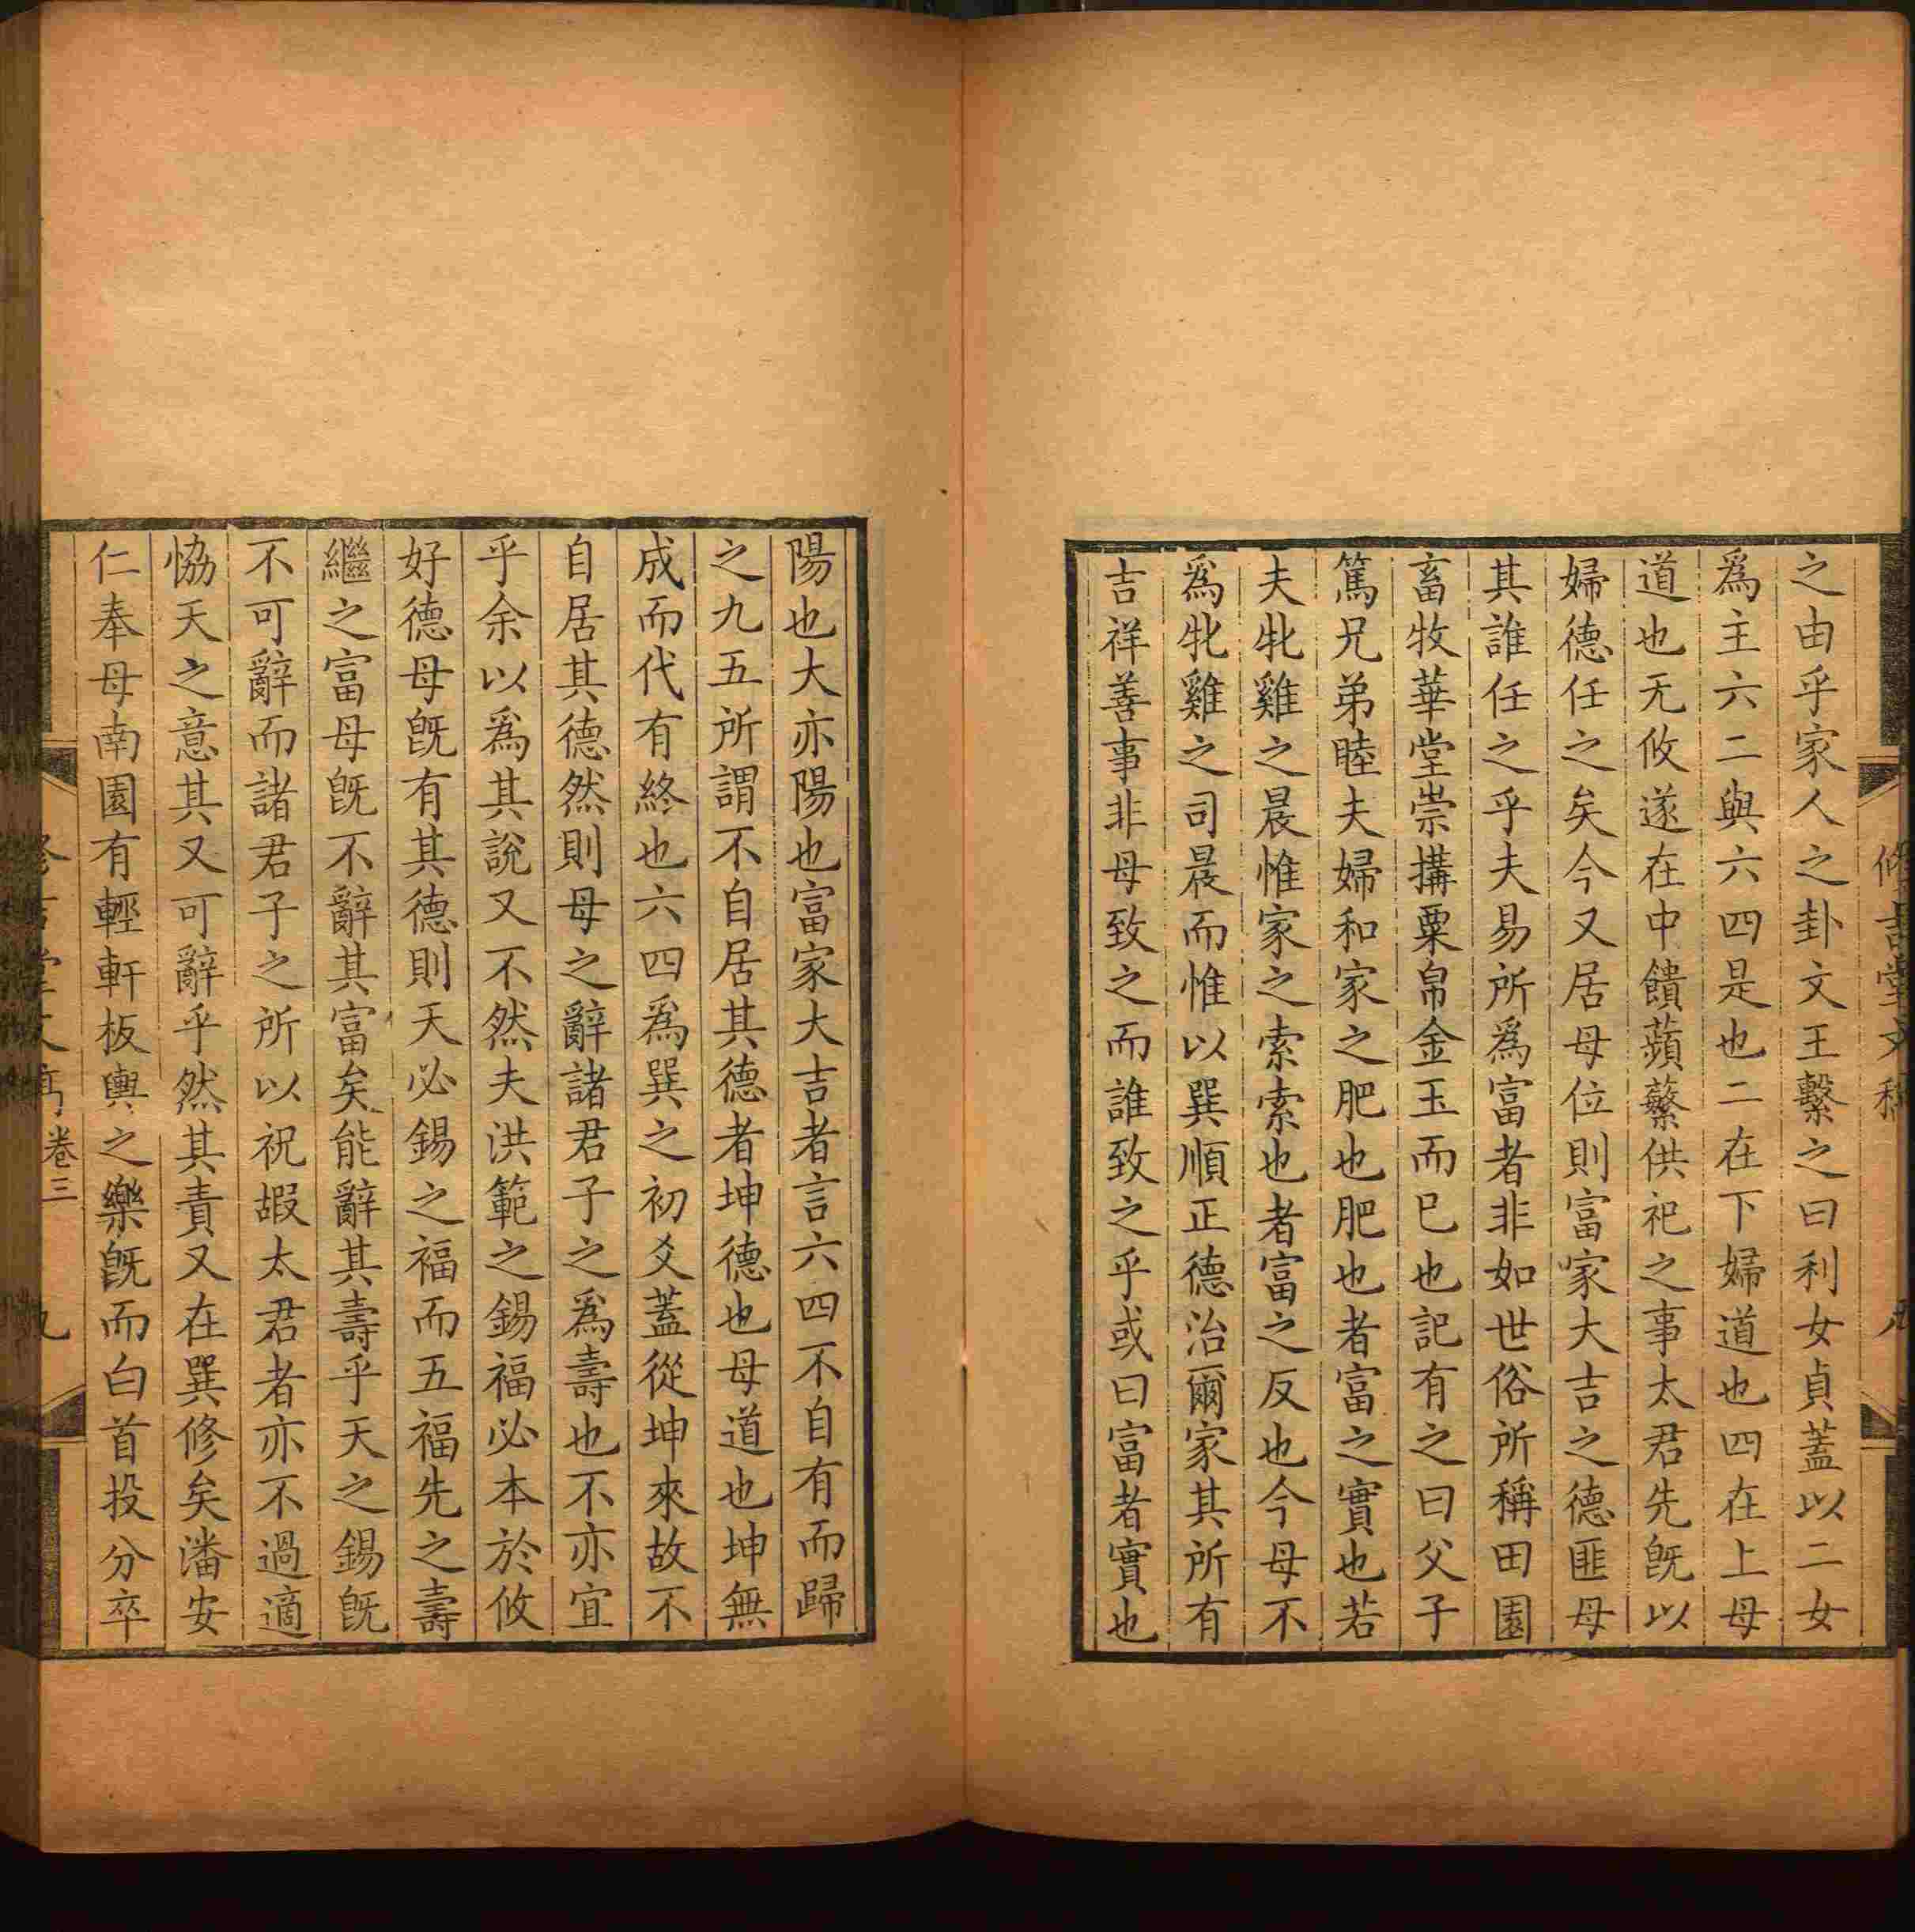 之由乎家人之卦文王繫之曰利女貞蓋以二女
爲主六二與六四是也二在下婦道也四在上母
道也无攸遂在中饋蘋蘩供祀之事太君先旣以
婦德任之矣今又居母位則富家大吉之德匪母
其誰任之乎夫易所爲富者非如世俗所稱田園
畜牧華堂崇搆粟帛金玉而巳也記有之曰父子
篤兄弟睦夫婦和家之肥也肥也者富之實也若
夫牝雞之晨惟家之索索也者富之反也今母不
爲牝雞之司晨而惟以巽順正德治爾家其所有
吉祥善事非母致之而誰致之乎或曰富者實也
陽也大亦陽也富家大吉者言六四不自有而歸
之九五所謂不自居其德者坤德也母道也坤無
成而代有終也六四爲巽之初爻蓋從坤來故不
自居其德然則母之辭諸君子之爲壽也不亦宜
乎余以爲其說又不然夫洪範之錫福必本於攸
好德母旣有其德則天必錫之福而五福先之壽
繼之富母旣不辭其富矣能辭其壽乎天之錫旣
不可辭而諸君子之所以祝嘏太君者亦不過適
恊天之意其又可辭乎然其責又在巽修矣潘安
仁奉母南園有輕軒板輿之樂旣而白首投分卒
卷三
九